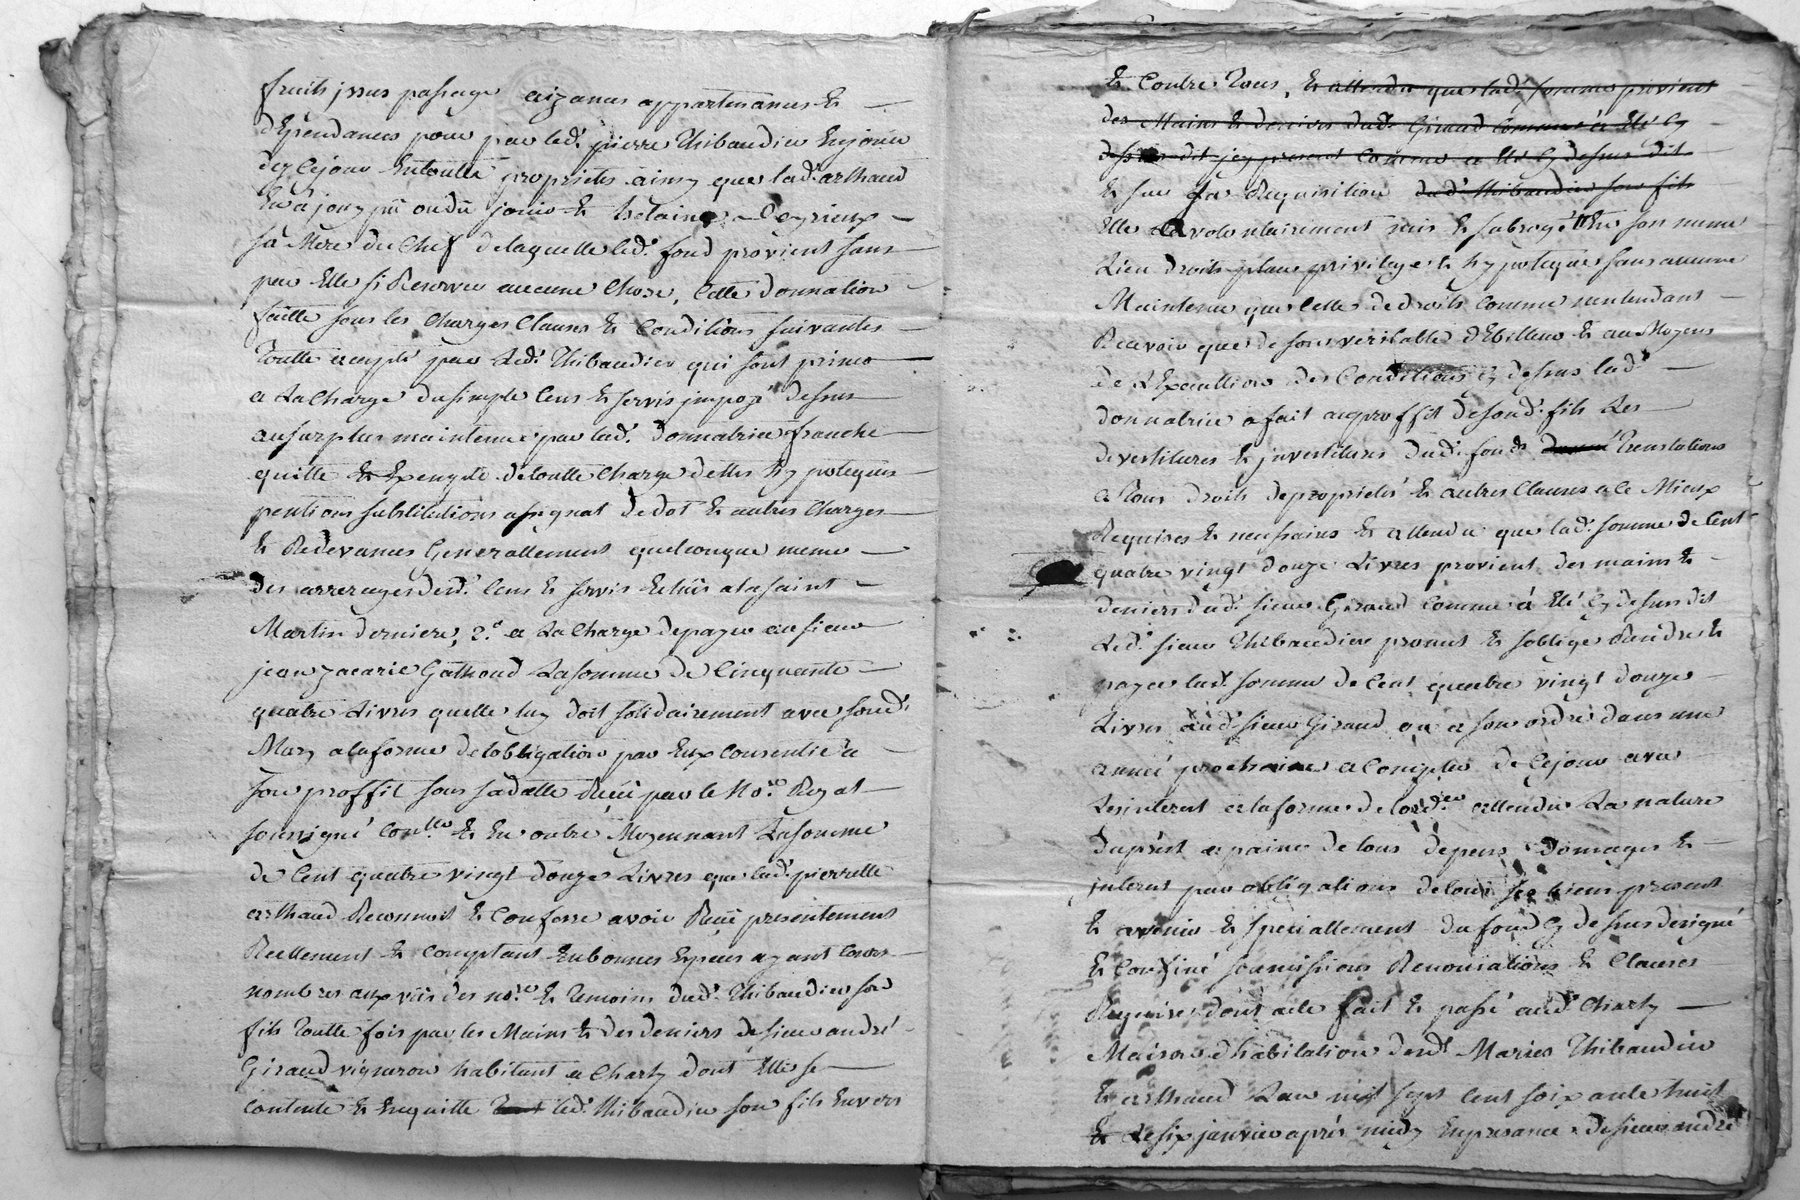 fruits jssus passage aizances appartenances &
dépendances pour par led. pierre Thibaudier En jouir
dez Cejour Entoutte proprieté ainsy que lad. arthaud
En a jouy pû ou dû jouir &
sa Mere du Chef delaquelle led. fond provient sans
par Elle si Reserver aucune Chose, Cette donnation
faitte sous les Charges Clauses & Conditions suivantes
Toutte accepté par Led. Thibaudier qui sont primo
a La Charge du simple Cens & servis jmposé dessus
au surplus maintenue par lad. donnatrice franche
quitte & Exempte detoutte Charge dettes hypoteques
pentions substitutions assignat de dot & autres Charges
& Redevances Generallement quelconque meme
des arrerages desd. Cens & servis Echûs alasaint
Martin derniere, 2.° a La Charge depayer au sieur
jean zacarie Gathoud Lasomme de Cinquante
quatre Livres quelle luy doit solidairement avec sond.
Mary alaforme delobligation par Eux Consentie a
son proffit sous sadatte Reçü par le No.re Rozat
soussigné Con.lle & En outre Moyennant Lasomme
de Cent quatre vingt douze Livres que lad. pierrette
arthaud Reconnoit & Confesse avoir Reçü presentement
Reellement & Comptant Enbonnes Espèces ayant Cours
nombrées aux vües des no.re & Temoins dud. Thibaudier son
fils Toutte fois par les Mains & des deniers de sieur andré
Giraud vigneron habitant a Charly dont Elle se
Contente & Enquitte led. Thibaudier son fils Envers
& Contre Tous, & attendu que lad. somme provient
des Mains & deniers dud. Giraud Comme a Eté Cy
dessus dit jcy present Comme a Eté Cy dessus dit
& sur sa Requisition dud. Thibaudier son fils
Elle a volontairement mis & subrogé En son nom
Lieu droits place privilege & hypoteque sans aucune
Maintenue que Celle de droits Comme nentendant
Recevoir que de son veritable débitteur & au Moyens
de LExecution des Conditions Cy dessus lad.
donnatrice a fait au proffit desond. fils Les
devestitures & jnvestitures dud. fonds Translations
a Tous droits deproprieté & autres Clauses a Ce Mieux
Requises & necessaires & attendu que lad. somme de Cent
quatre vingt douze Livres provient des mains &
deniers dud. sieur Giraud Comme á Eté Cy dessus dit
Led. sieur Thibaudier promet & soblige Rendre &
payer lad. somme de Cent quatre vingt douze
Livres aud. sieur Giraud ou a son ordre dans une
année prochaine a Compter de Cejour avec
Lesinterest alaforme de lord.ce attendu La nature
duprêst a paine de tous depens Domages &
jnterest par obligations detous ses biens present
& avenir & speciallement du fond Cy dessus designé
& Confiné soumissions Renonciations & Clauses
Requises dont acte fait & passé aud. Charly
Maison dhabitation desd. Maries Thibaudier
& arthaud Lan mil sept Cent soixante huit
& Lesix janvier aprés midy Enpresance de sieur andré